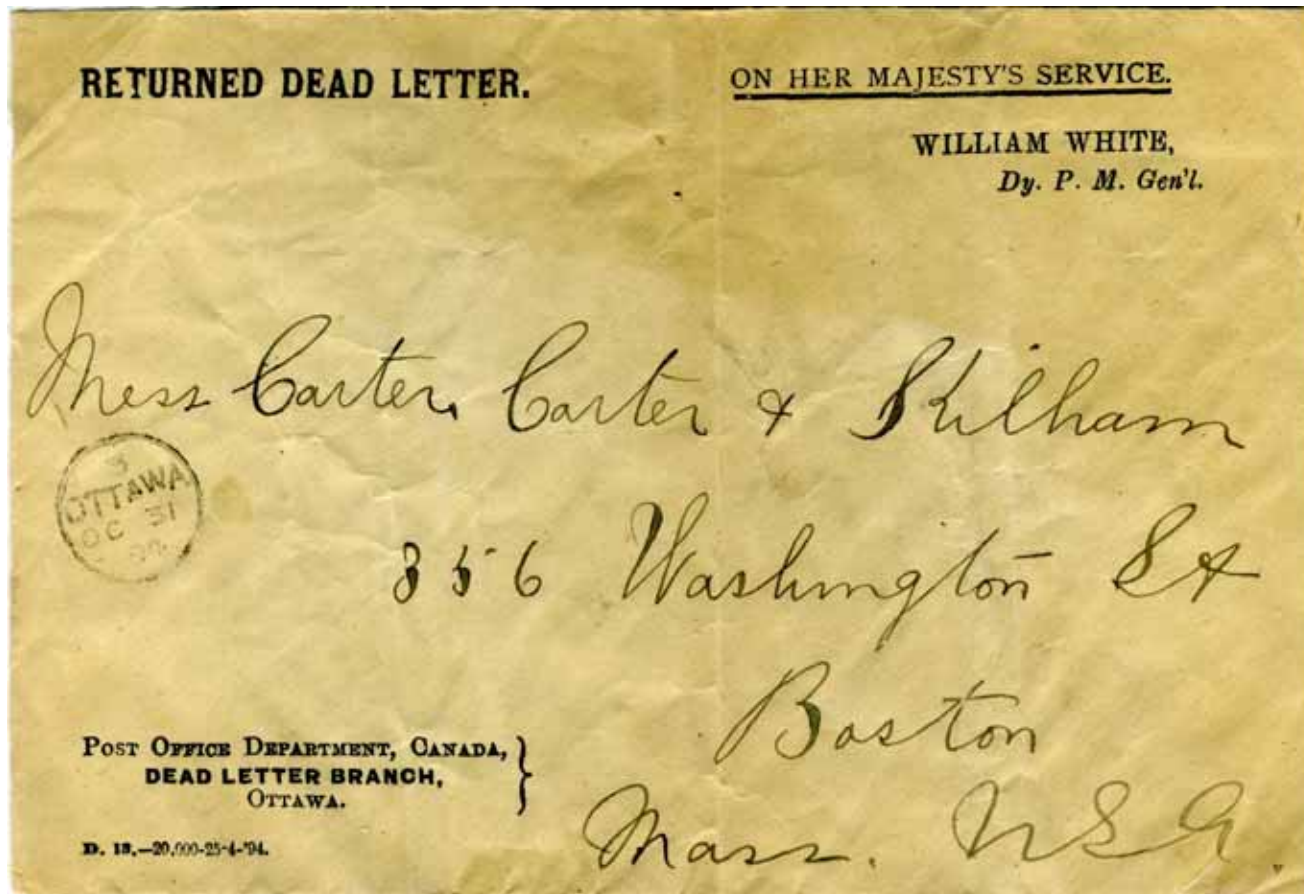 RETURNED DEAD LETTER.
ON HER MAJESTY'S SERVICE.
WILLIAM WHITE,
Dy. P. M. Gen'l.
Mess Carter, Carter & Kilham
3
OTTAWA
OC 31
356 Washington St
Boston
Mass. USA
POST OFFICE DEPARTMENT, CANADA,
DEAD LETTER BRANCH,
OTTAWA.
D. 13.—20,000-25-4-'94.